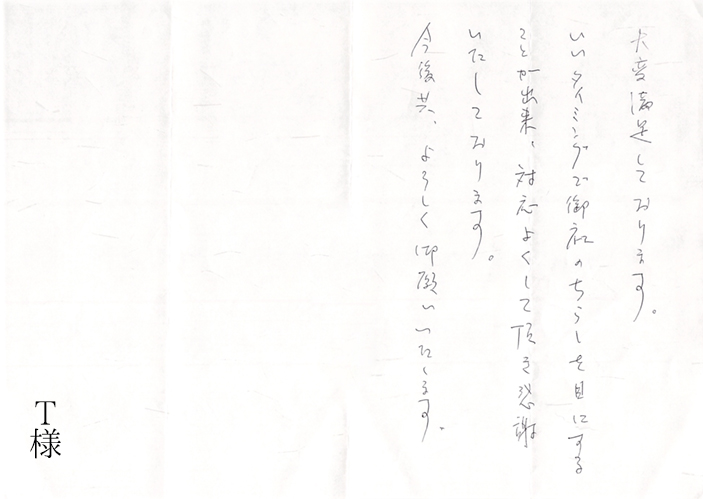 大変満足しております。
いいタイミングで御社のちらしを目にする
ことが出来、対応よくして頂き感謝
いたしております。
今後共、よろしく御願いいたします。
T様